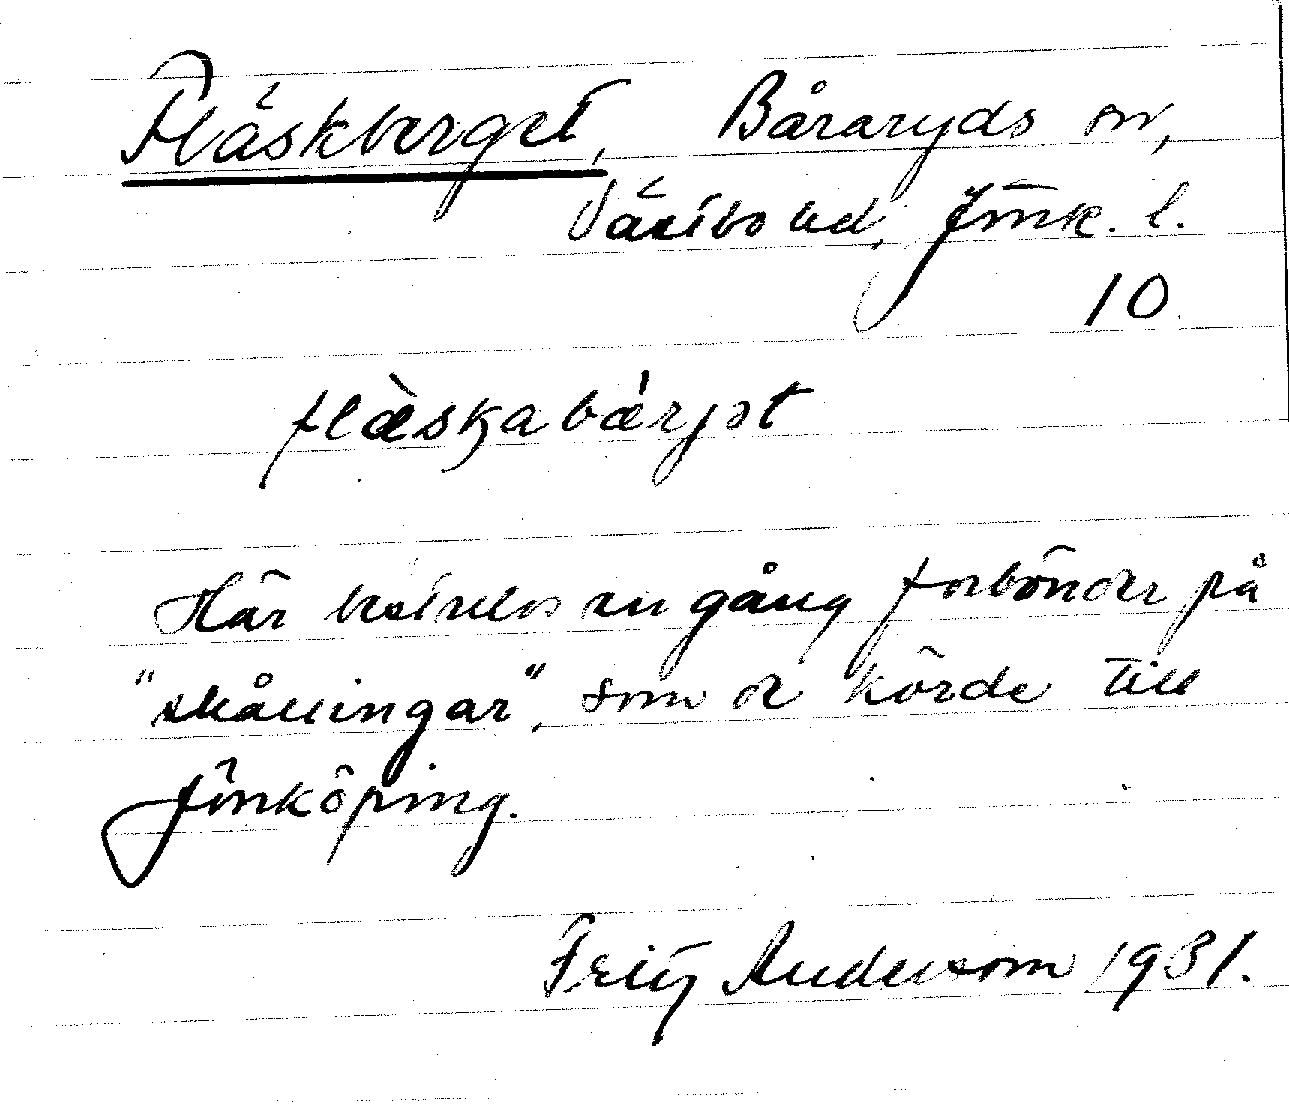 Fläskberget, Båraryds sn,
Västbo hd, Jönk. l.
10
flæ̀skabæ̀rjət
Här bestulos en gång forbönder på
"skållingar", som de körde till
Jönköping.
Fritz Anderson 1931.